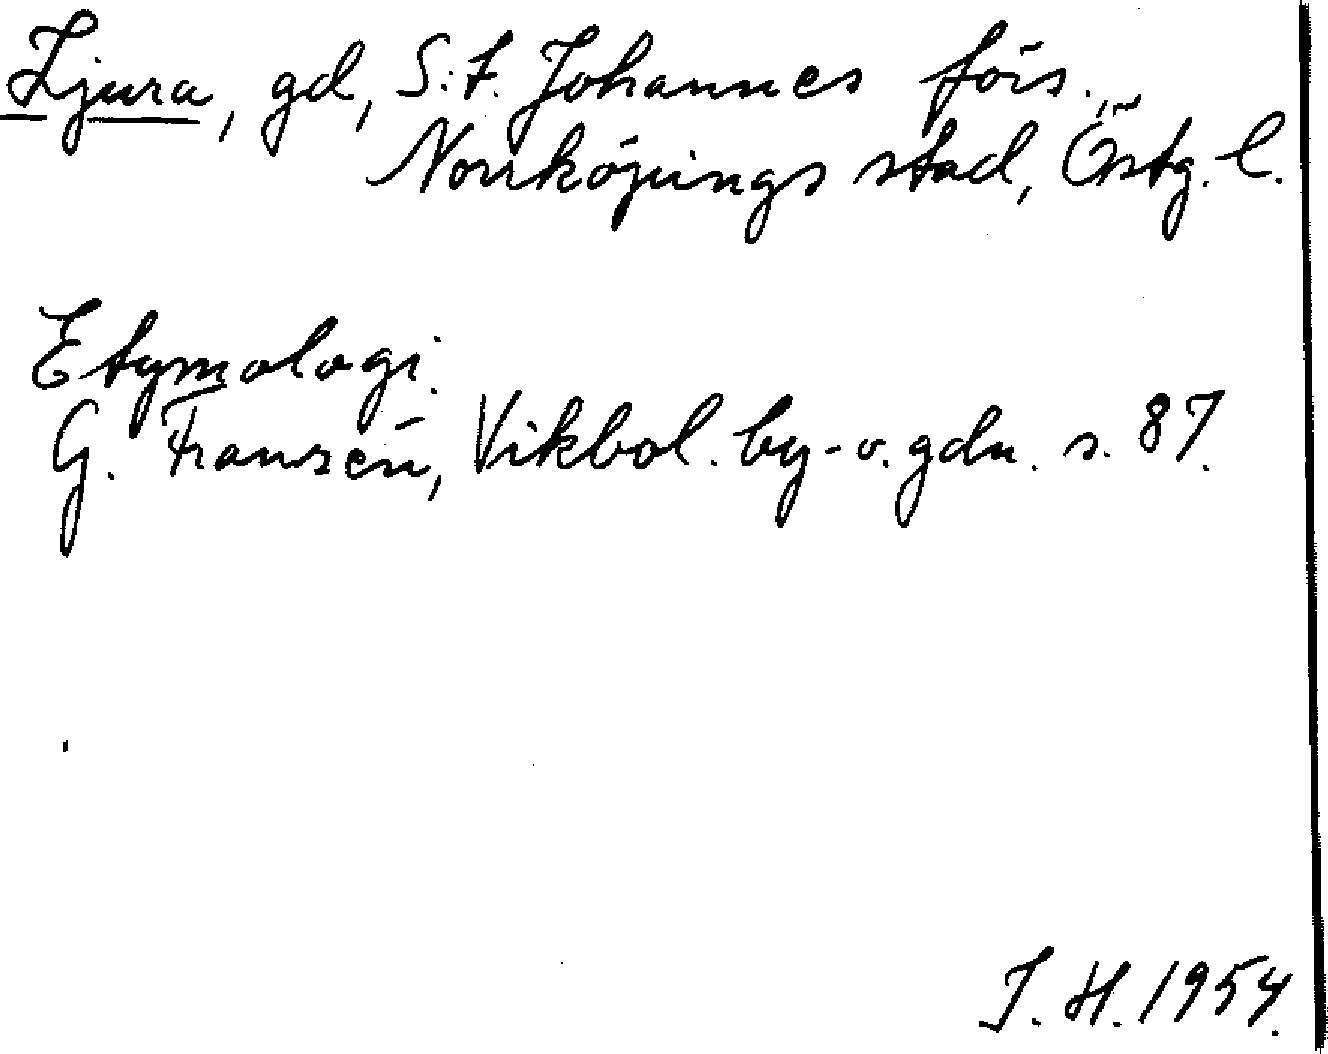 Ljura, gd, S:t Johannes förs.,
Norrköpings stad, Östg. l.
Etymologi.
G. Franzén, Vikbol. by- o. gdn. s. 87.
J. H. 1954.